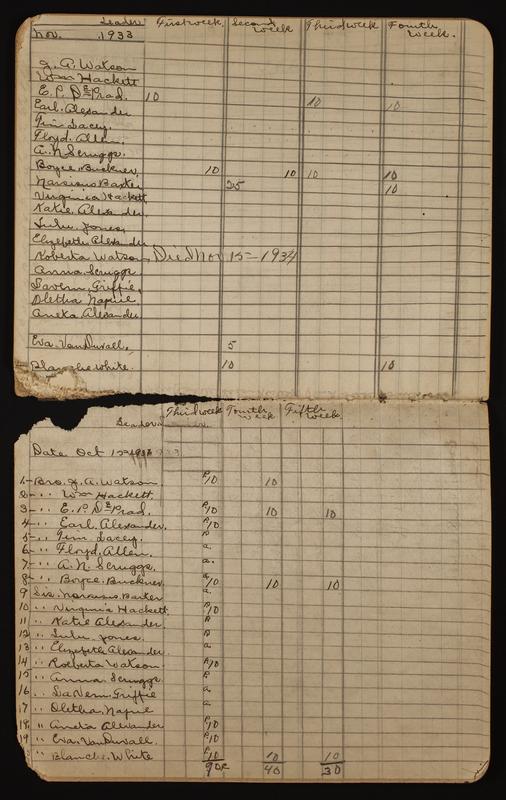 Leader First week Second week Third week Fourth week.
Nov. 1933
J. A. Watson
Wm Hackett
E. P. DePrad. 10 10
Earl. Alexander 10
Tim Lacey.
Floyd. Allen.
A. N. Scruggs.
Boyce. Buckner. 10 10 10 10
Narcisus Baxter 25 10
Virginia Hackett
Katie Alexander.
Lulu Jones.
Elizebeth Alexander
Roberta Watson, Died Nov 15 = 1934
Anna. Scruggs
Lavern. Griffie.
Oletha Napue
Aneta Alexander
Eva VanDuvall. 5
Blanche White. 10 10
Third week Fourth week Fifth week
Leader
Date Oct 15 1933
1- Bro. J. A. Watson. P10 10
2- " Wm Hackett.
3- " E. P. DePrad. P10 10 10
4- " Earl. Alexander. P10
5- " Tim Lacey. P
6- " Floyd. Allen. a
7- " A. N. Scruggs. a.
8- " Boyce Buckner. 10 10 10
9 Sis. Narcisus Baxter a
10 " Virginia Hackett P10
11 " Katie Alexander. P
12 " Lulu Jones. P
13 " Elizebeth Alexander a
14 " Roeberta Watson P10
15 " Anna Scruggs P
16 " LaVern Griffie a
17 " Oletha. Napue a
18 " Aneta Alexander P10
19 " Eva. VanDuvall. P10
" Blanche. White P10 10 10
90¢ 40 30